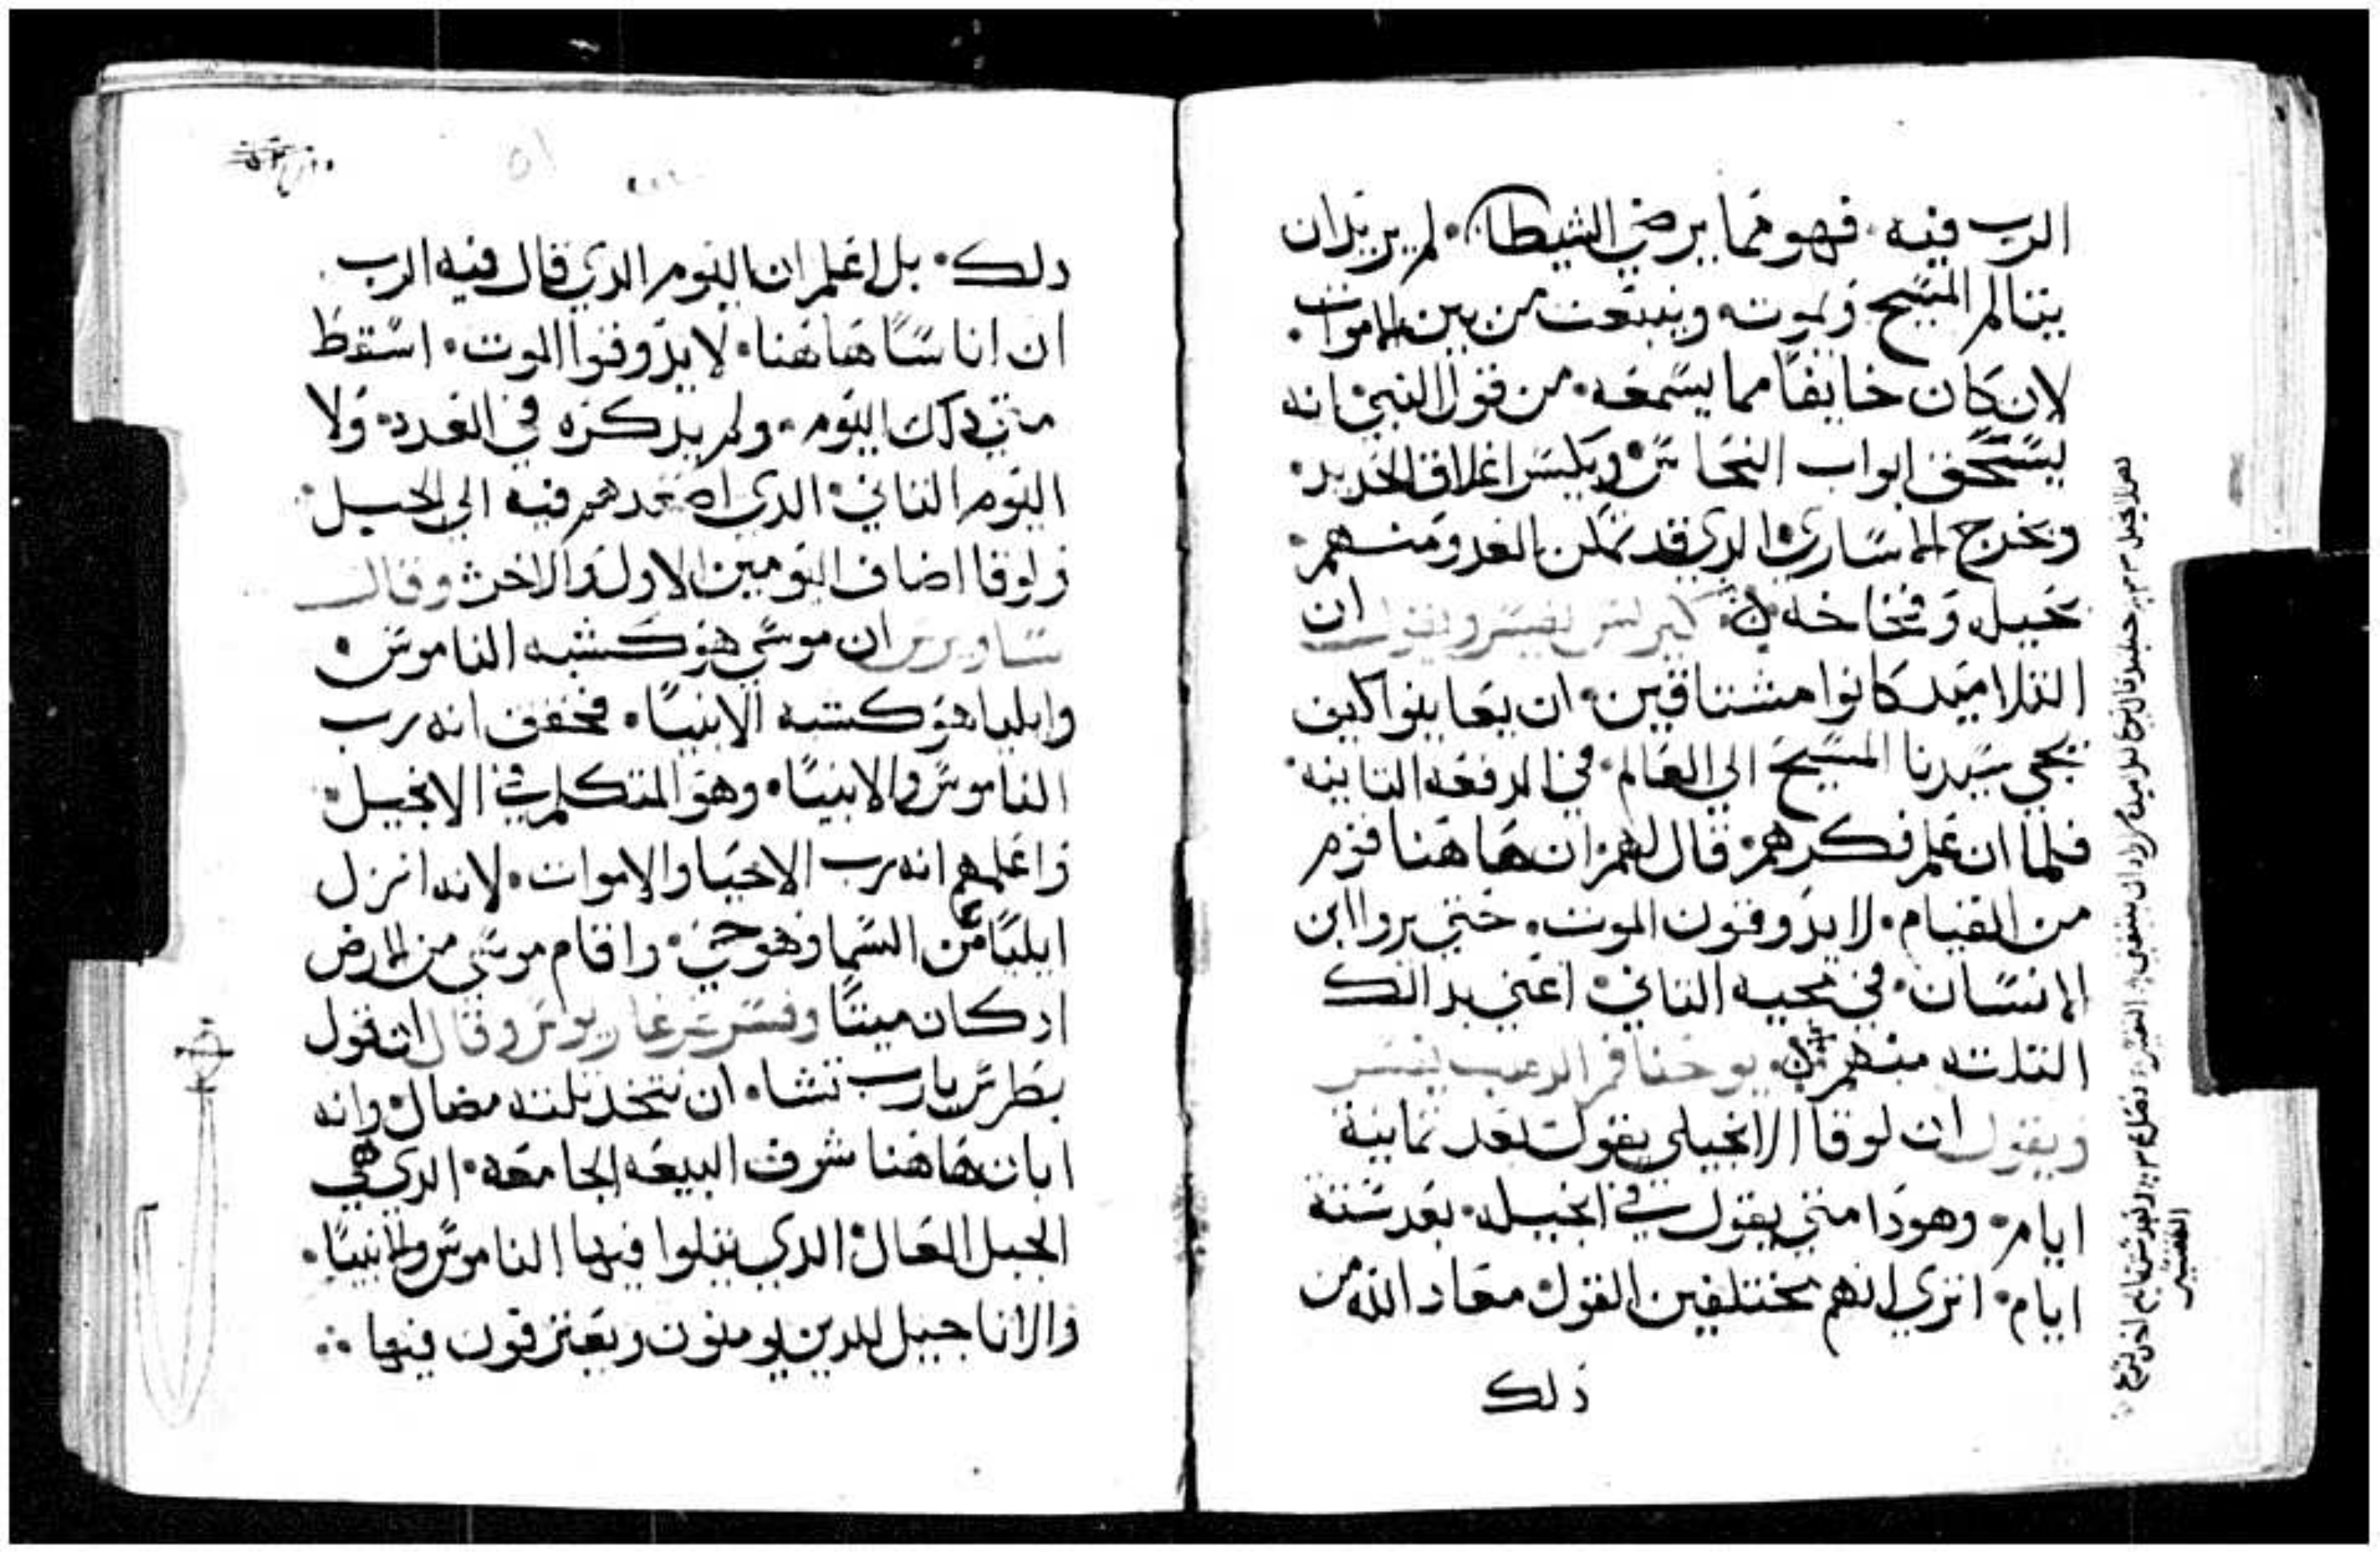 الرب فيه. فهو مما يرضي الشيطان. لم يريد ان
يتالم المسيح ويموت وينبعث من بين الاموات.
لان كان خايفا مما يسمعه. من قول النبي انه
يسحق ابواب النحاس ويكسر اغلاق الحديد.
ويخرج الاساري الدي قد تمكن العدو منهم.
بحيله وفخاخه كيرلس يفسر ويقول ان
التلاميد كانوا مشتاقين. ان يعاينوا كيف
يجي سيدنا المسيح الي العالم. في الدفعه التانيه.
فلما ان علم فكرهم. قال لهم. ان هاهنا قوم
من القيام. لا يدوقون الموت. حتي يروا ابن
الانسان. في مجيه التاني. اعني بدالك
التلته منهم يوحنا فم الدهب يفسر
ويقول ان لوقا الانجيلي يقول بعد تمانية
ايام. وهودا متي يقول في انجيله. بعد ستة
ايام. اتري انهم مختلفين القول. معاد الله من
دلك
دلك. بل اعلم ان اليوم الدي قال فيه الرب
ان اناسا هاهنا. لا يدوقوا الموت. اسقط
متي دلك اليوم. ولم يدكره في العدد. ولا
اليوم التاني. الدي اصعدهم فيه الي الجبل.
ولوقا اضاف اليومين الاول والاخر. وقال
ساويرس ان موسي هو كشبه الناموس.
وايليا هو كشبه الانبيا. فحقق انه رب
الناموس والانبيا. وهو المتكلم في الانجيل.
واعلمهم انه رب الاحيا والاموات. لانه انزل
ايليا من السما وهو حي. واقام موسي من الارض
اد كان ميتا وفسر غريغاريوس وقال ان قول
بطرس يارب تشاء ان نتخد تلته مضال. وانه
ابان هاهنا شرف البيعه الجامعه. الدي هي
الجبل العال. الدي يتلوا فيها الناموس والانبيا.
والاناجيل للدين يومنون ويعترفون فيها